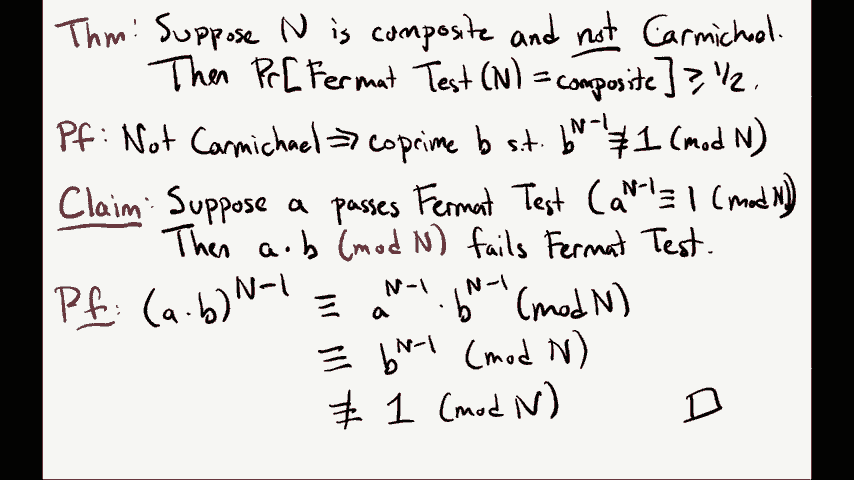 Thm: Suppose N is composite and not Carmichael.
Then Pr[Fermat Test(N) = composite] ≥ 1/2.
Pf: Not Carmichael ⇒ coprime b s.t. b^{N-1} ≢ 1 (mod N)
Claim: Suppose a passes Fermat Test (a^{N-1} ≡ 1 (mod N))
Then a·b (mod N) fails Fermat Test.
Pf: (a·b)^{N-1} ≡ a^{N-1} · b^{N-1} (mod N)
≡ b^{N-1} (mod N)
≢ 1 (mod N) □